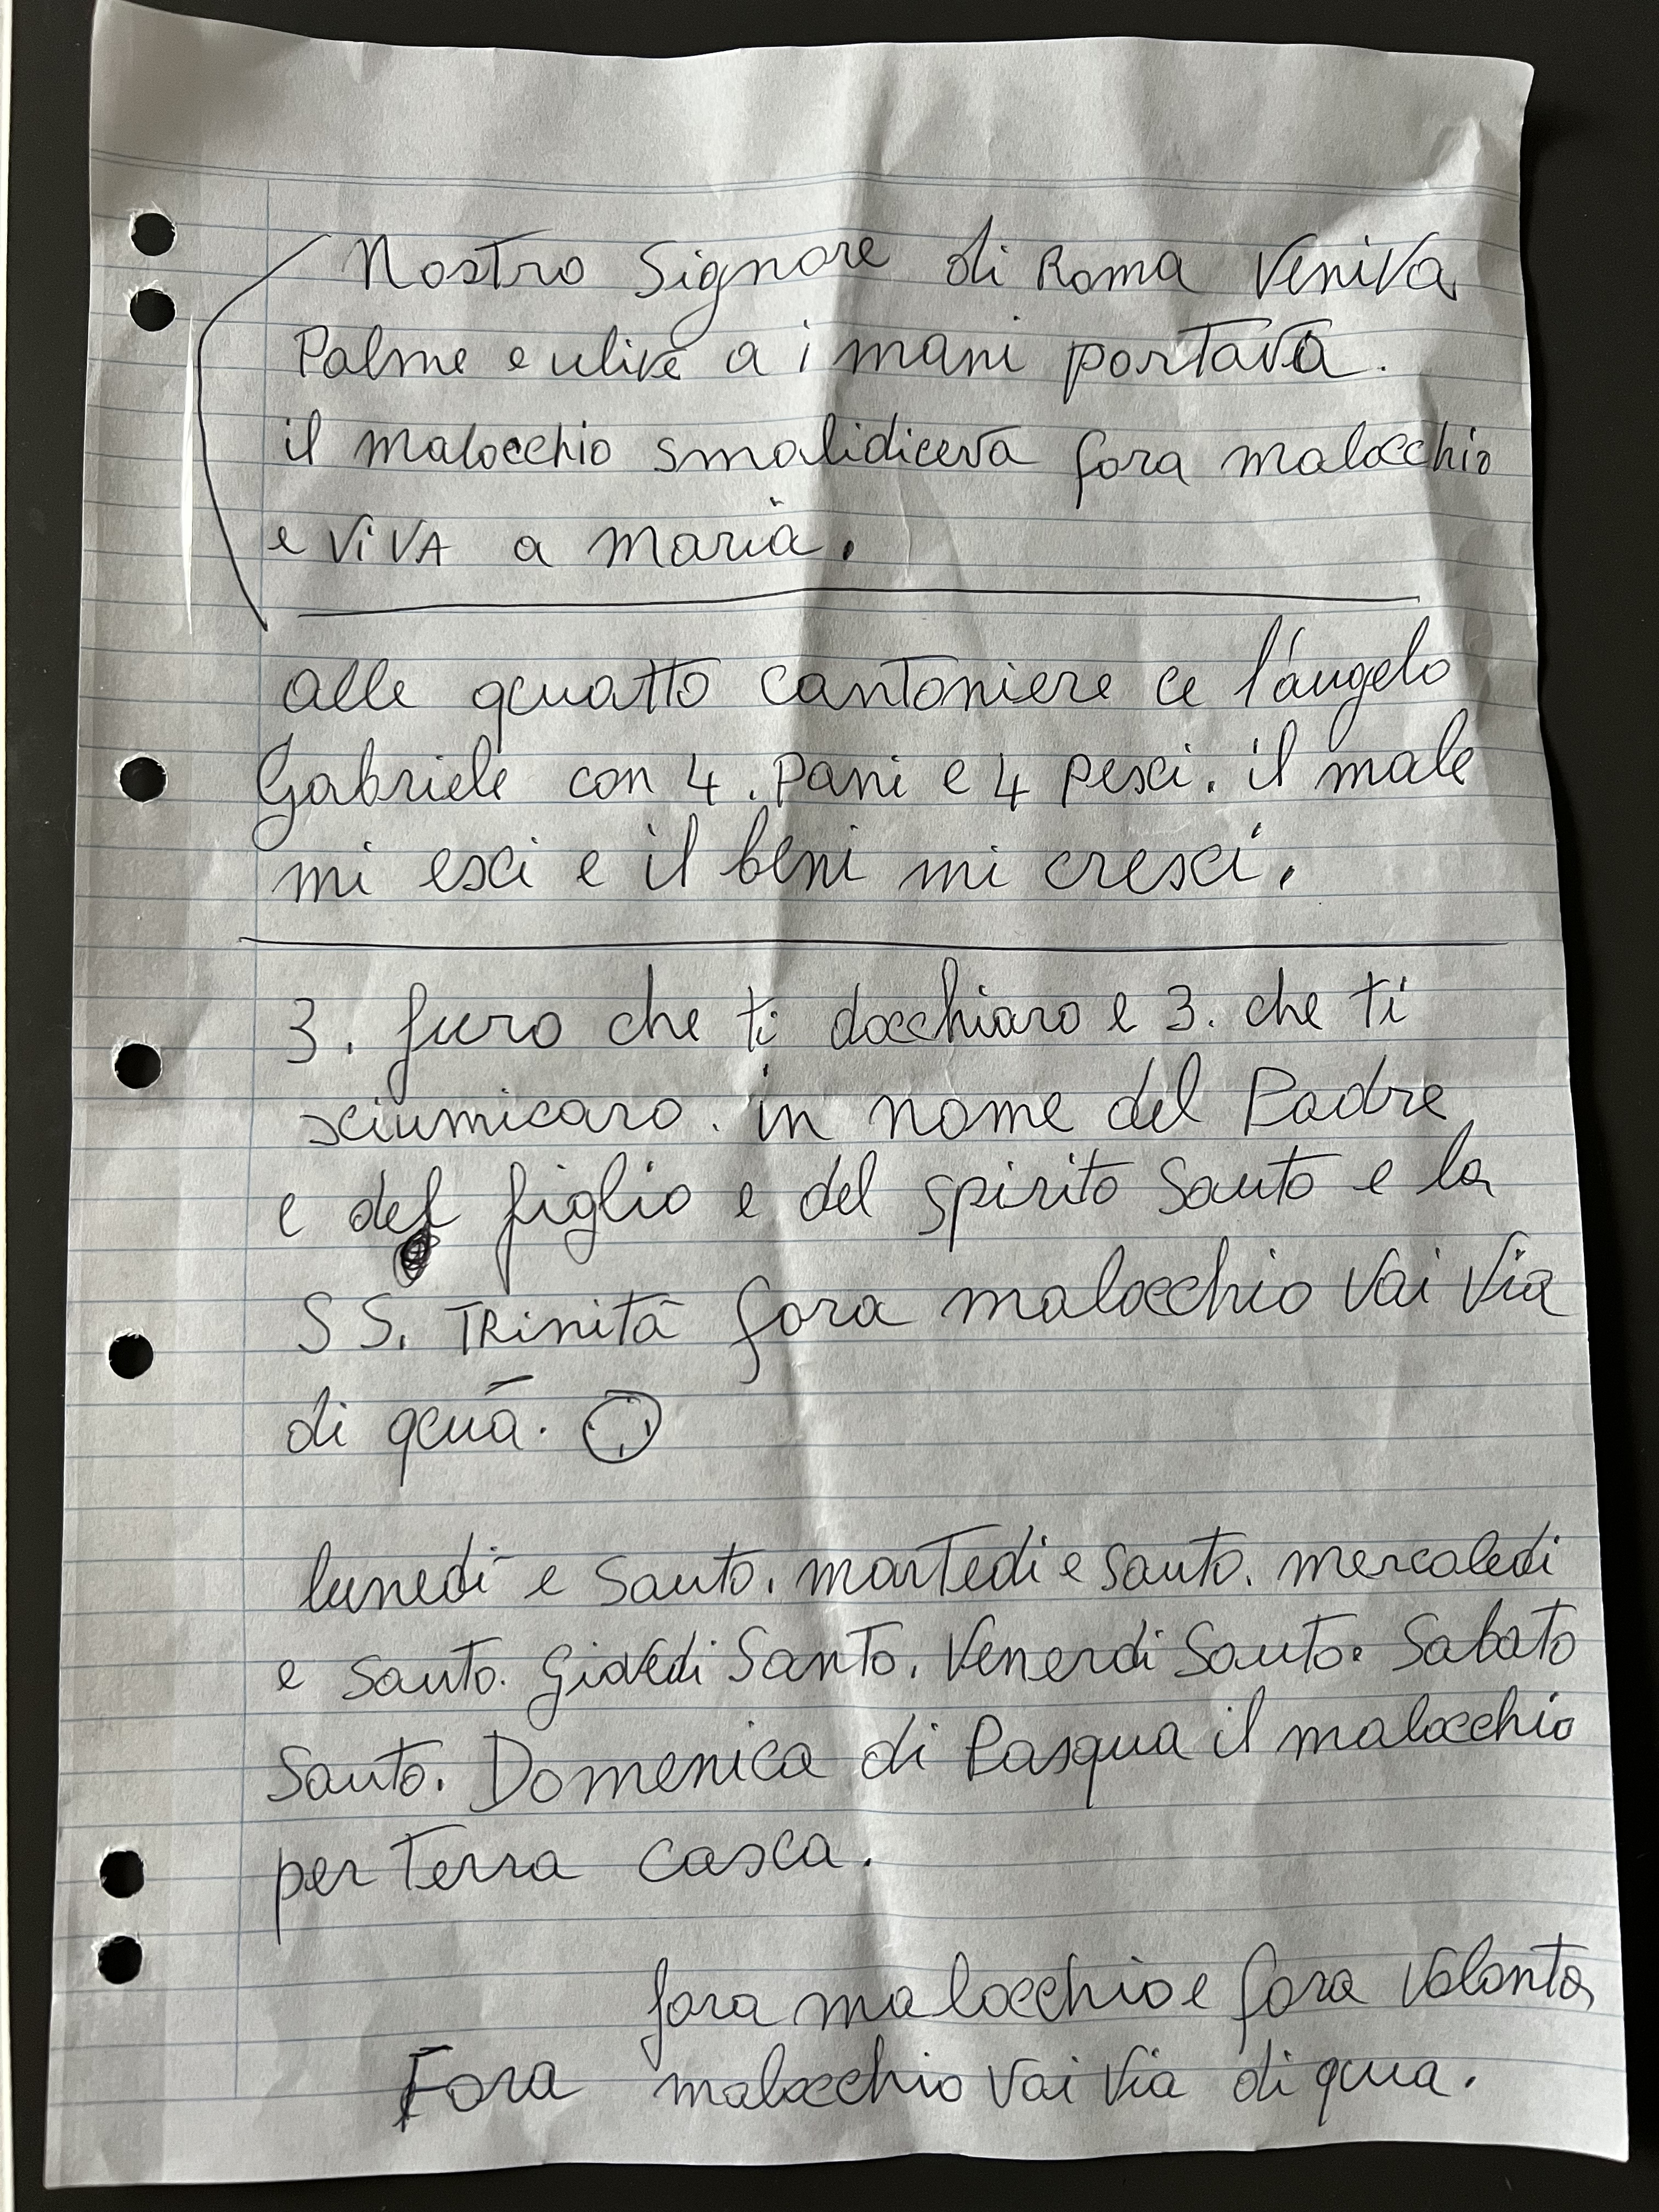 Nostro Signore di Roma Veniva
Palme e ulive a i mani portava.
il malocchio smalidiceva fora malocchio
e ViVA a Maria.
alle quatto cantoniere ce l'angelo
Gabriele con 4. Pani e 4 pesci. il male
mi esci e il beni mi cresci.
3. furo che ti docchiaro e 3. che ti
sciumicaro. in nome del Padre
e del figlio e del spirito Santo e la
SS. TRinità fora malocchio Vai Via
di quà.
lunedì e Santo. martedi e santo. mercoledi
e santo. Giovedi Santo. Venerdi Santo. Sabato
Santo. Domenica di Pasqua il malocchio
per terra casca.
fora malocchio e fora Volonta
Fora malocchio Vai Via di qua.